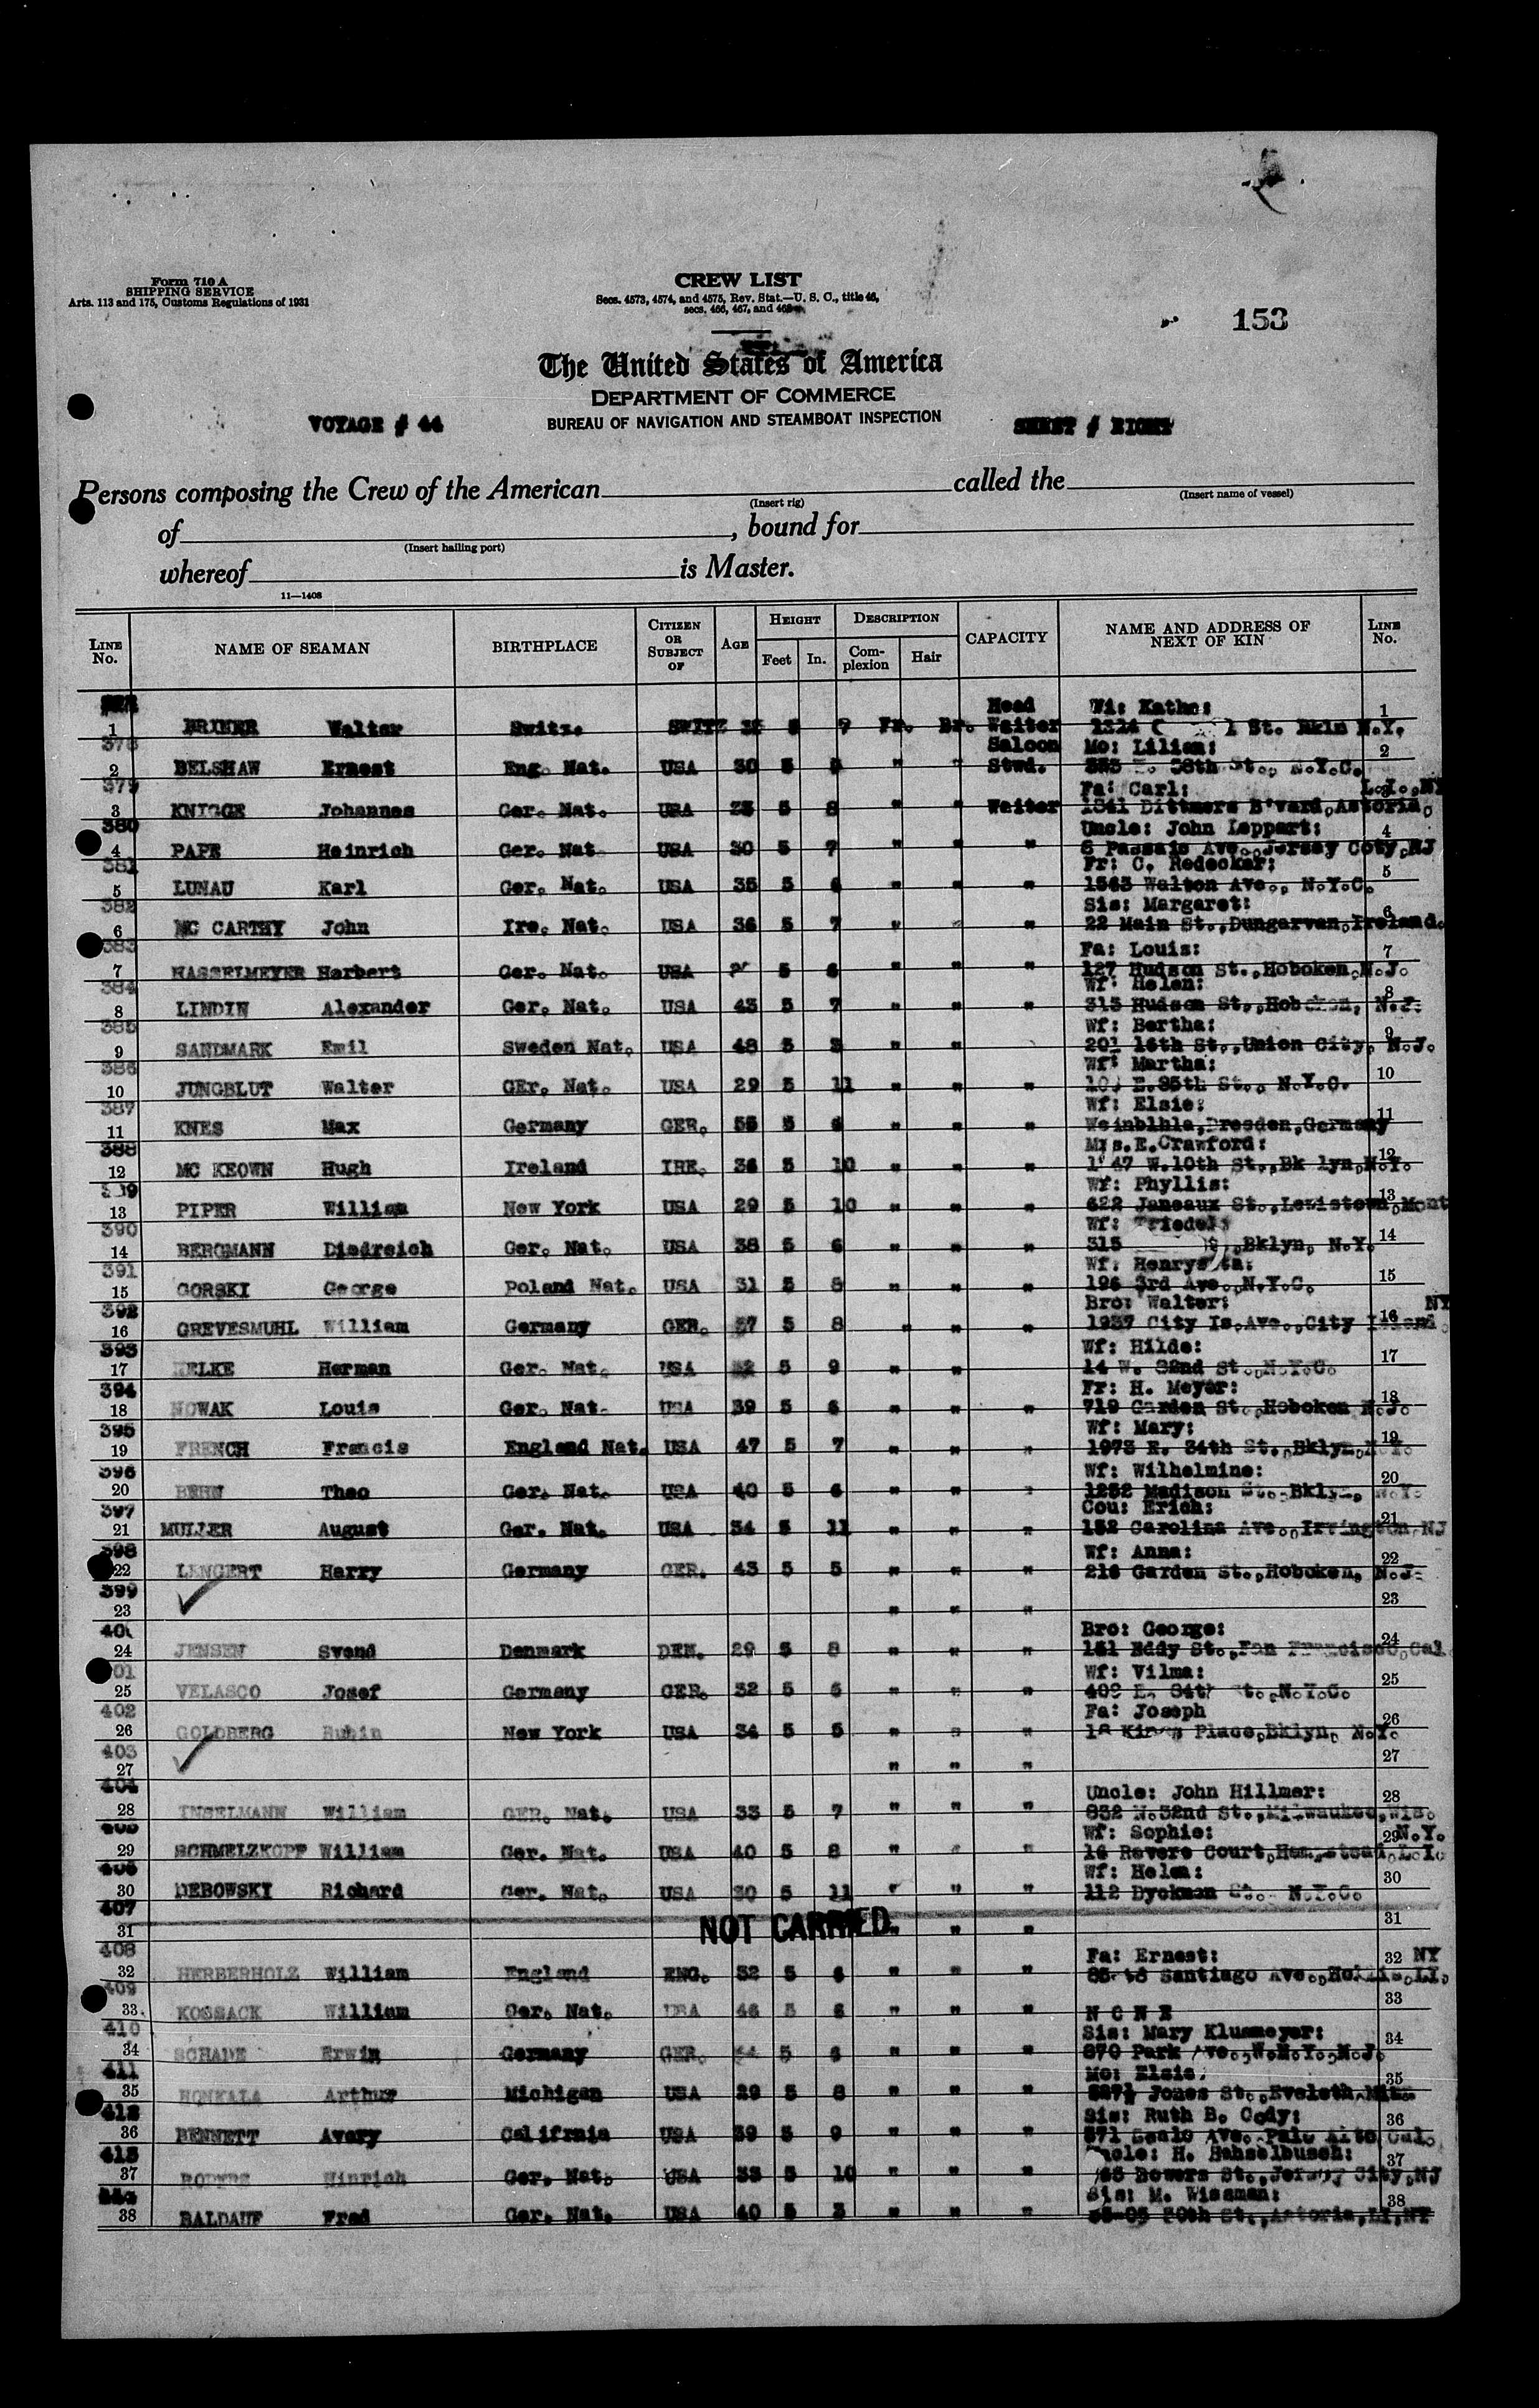 Form 710 A
SHIPPING SERVICE
Arts. 113 and 175, Customs Regulations of 1931
CREW LIST
Secs. 4573, 4574, and 4575, Rev. Stat.—U. S. C., title 46,
secs. 466, 467, and 468
153
The United States of America
DEPARTMENT OF COMMERCE
BUREAU OF NAVIGATION AND STEAMBOAT INSPECTION
VOYAGE # 44
SHEET # EIGHT
Persons composing the Crew of the American called the
(Insert rig) (Insert name of vessel)
of , bound for
(Insert hailing port)
whereof is Master.
11—1408
LINE No. NAME OF SEAMAN BIRTHPLACE CITIZEN OR SUBJECT OF AGE HEIGHT Feet In. DESCRIPTION Complexion Hair CAPACITY NAME AND ADDRESS OF NEXT OF KIN LINE No.
Head Wi: Kathe:
1 BRINER Walter Switz. SWITZ 5 9 Fr. Br. Waiter St. Bkln N.Y. 1
378 Saloon Mo: Lilian:
2 BELSHAW Ernest Eng. Nat. USA 30 5 " " Stwd. 38th St., N.Y.C. 2
379 Fa: Carl: L.I.,NY
3 KNIGGE Johannes Ger. Nat. USA 5 8 " " Waiter 1841 Dittmars B'vard,Astoria, 3
380 Uncle: John Leppart:
4 PAPE Heinrich Ger. Nat. USA 30 5 7 " " " 6 Passaic Ave.,Jersey Coty,NJ 4
381 Fr: C. Redecker:
5 LUNAU Karl Ger. Nat. USA 35 5 6 " " " 1563 Walton Ave., N.Y.C. 5
382 Sis: Margaret:
6 MC CARTHY John Ire. Nat. USA 36 5 7 " " " 22 Main St.,Dungarvan,Ireland. 6
383 Fa: Louis:
7 HASSELMEYER Herbert Ger. Nat. USA 5 6 " " " 127 Hudson St.,Hoboken,N.J. 7
384 Wf: Helen:
8 LINDIN Alexander Ger. Nat. USA 43 5 7 " " " 315 Hudson St.,Hoboken, N.J. 8
385 Wf: Bertha:
9 SANDMARK Emil Sweden Nat. USA 48 5 3 " " 201 16th St.,Union City, N.J. 9
386 Wf: Martha:
10 JUNGBLUT Walter GEr. Nat. USA 29 5 11 " " " E.85th St., N.Y.C. 10
387 Wf: Elsie:
11 KNES Max Germany GER. 55 5 6 " " " Weinblhla,Dresden,Germany 11
388 Mrs.E.Crawford:
12 MC KEOWN Hugh Ireland IRE. 36 5 10 " " " W.10th St.,Bk lyn,N.Y. 12
Wf: Phyllis:
13 PIPER William New York USA 29 5 10 " " " 622 Janeaux St.,Lewistown,Mont 13
390 Wf: Friedel:
14 BERGMANN Diedreich Ger. Nat. USA 38 5 6 " " " 315 ,Bklyn, N.Y. 14
391 Wf: Henryetta:
15 GORSKI George Poland Nat. USA 31 5 8 " " " 196 3rd Ave.,N.Y.C. 15
392 Bro: Walter: NY
16 GREVESMUHL William Germany GER. 37 5 8 " " " 1937 City Is.Ave.,City Island. 16
393 Wf: Hilde:
17 Herman Ger. Nat. USA 32 5 9 " " " 14 W. 82nd St.,N.Y.C. 17
394 Fr: H. Meyer:
18 NOWAK Louis Ger. Nat. USA 39 5 6 " " " 719 Garden St.,Hoboken N.J. 18
395 Wf: Mary:
19 FRENCH Francis England Nat. USA 47 5 7 " " " 1973 E. 34th St.,Bklyn,N.Y. 19
396 Wf: Wilhelmine:
20 BEHN Theo Ger. Nat. USA 40 5 6 " " " 1252 Madison St.,Bklyn, N.Y. 20
397 Cou: Erich:
21 MULLER August Ger. Nat. USA 34 5 11 " " " 152 Carolina Ave.,Irvington,NJ 21
398 Wf: Anna:
22 LENGERT Harry Germany GER. 43 5 5 " " " 216 Garden St.,Hoboken, N.J. 22
399
23 " " " 23
400 Bro: George:
24 JENSEN Svend Denmark DEN. 29 5 8 " " " 151 Eddy St.,San Francisco,Cal 24
401 Wf: Vilma:
25 VELASCO Josef Germany GER. 32 5 5 " " " 84th St.,N.Y.C. 25
402 Fa: Joseph
26 GOLDBERG Rubin New York USA 34 5 5 " " " 18 Kings Place,Bklyn, N.Y. 26
403
27 " " " 27
404 Uncle: John Hillmer:
28 INSELMANN William GER. Nat. USA 33 5 7 " " " 832 N.32nd St.,Milwaukee,Wis. 28
405 Wf: Sophie: N.Y.
29 SCHMELZKOPF William Ger. Nat. USA 40 5 8 " " " 16 Revere Court,Hempstead,L.I. 29
406 Wf: Helen:
30 DEBOWSKI Richard Ger. Nat. USA 30 5 11 " " " 112 Dyckman St., N.Y.C. 30
407
31 NOT CARRIED " " " 31
408 Fa: Ernest: NY
32 HERBERHOLZ William England ENG. 32 5 6 " " " Santiago Ave.,Hollis,LI. 32
409
33 KOSSACK William Ger. Nat. USA 46 5 6 " " " N O N E 33
410 Sis: Mary Klusmeyer:
34 SCHADE Erwin Germany GER. 5 6 " " " 870 Park Ave.,W.N.Y.,N.J. 34
411 Mo: Elsie:
35 HONKALA Arthur Michigan USA 29 5 8 " " " Jones St.,Eveleth, 35
412 Sis: Ruth B. Cody:
36 BENNETT Avery Califrnia USA 39 5 9 " " " 571 Seale Ave. Palo Alto,Cal. 36
413 Uncle: H. Hahselbusch:
37 Hinrich Ger. Nat. USA 33 5 10 " " " Bowers St.,Jersey City,NJ 37
Sis: M. Wissman:
38 BALDAUF Fred Ger. Nat. USA 40 5 3 " " " 30th St.,Astoria,LI,NY 38